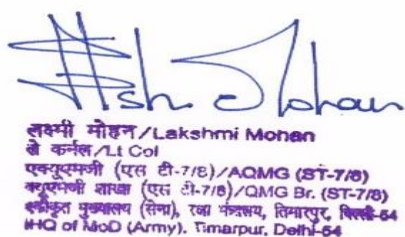 Mohan
लक्ष्मी मोहन/Lakshmi Mohan
ले कर्नल/Lt Col
एक्यूएमजी (एस टी-7/8)/AQMG (ST-7/8)
क्यूएमजी शाखा (एस टी-7/8)/QMG Br. (ST-7/8)
एकीकृत मुख्यालय (सेना), रक्षा मंत्रालय, तिमारपुर, दिल्ली-54
IHQ of MoD (Army), Timarpur, Delhi-54